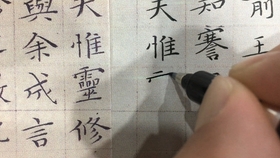 前王
知謇
夫惟
惟靈修
與余成言